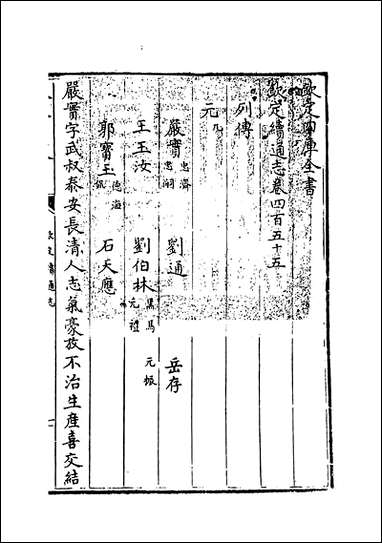 欽定四庫全書
欽定續通志卷四百五十五
列傳
元九
嚴實 忠濟 忠嗣 劉通 岳存
王玉汝 劉伯林 黑馬 元禮 元振
郭寳玉 德海 侃 石天應
嚴實字武叔泰安長清人志氣豪放不治生產喜交結
欽定續通志